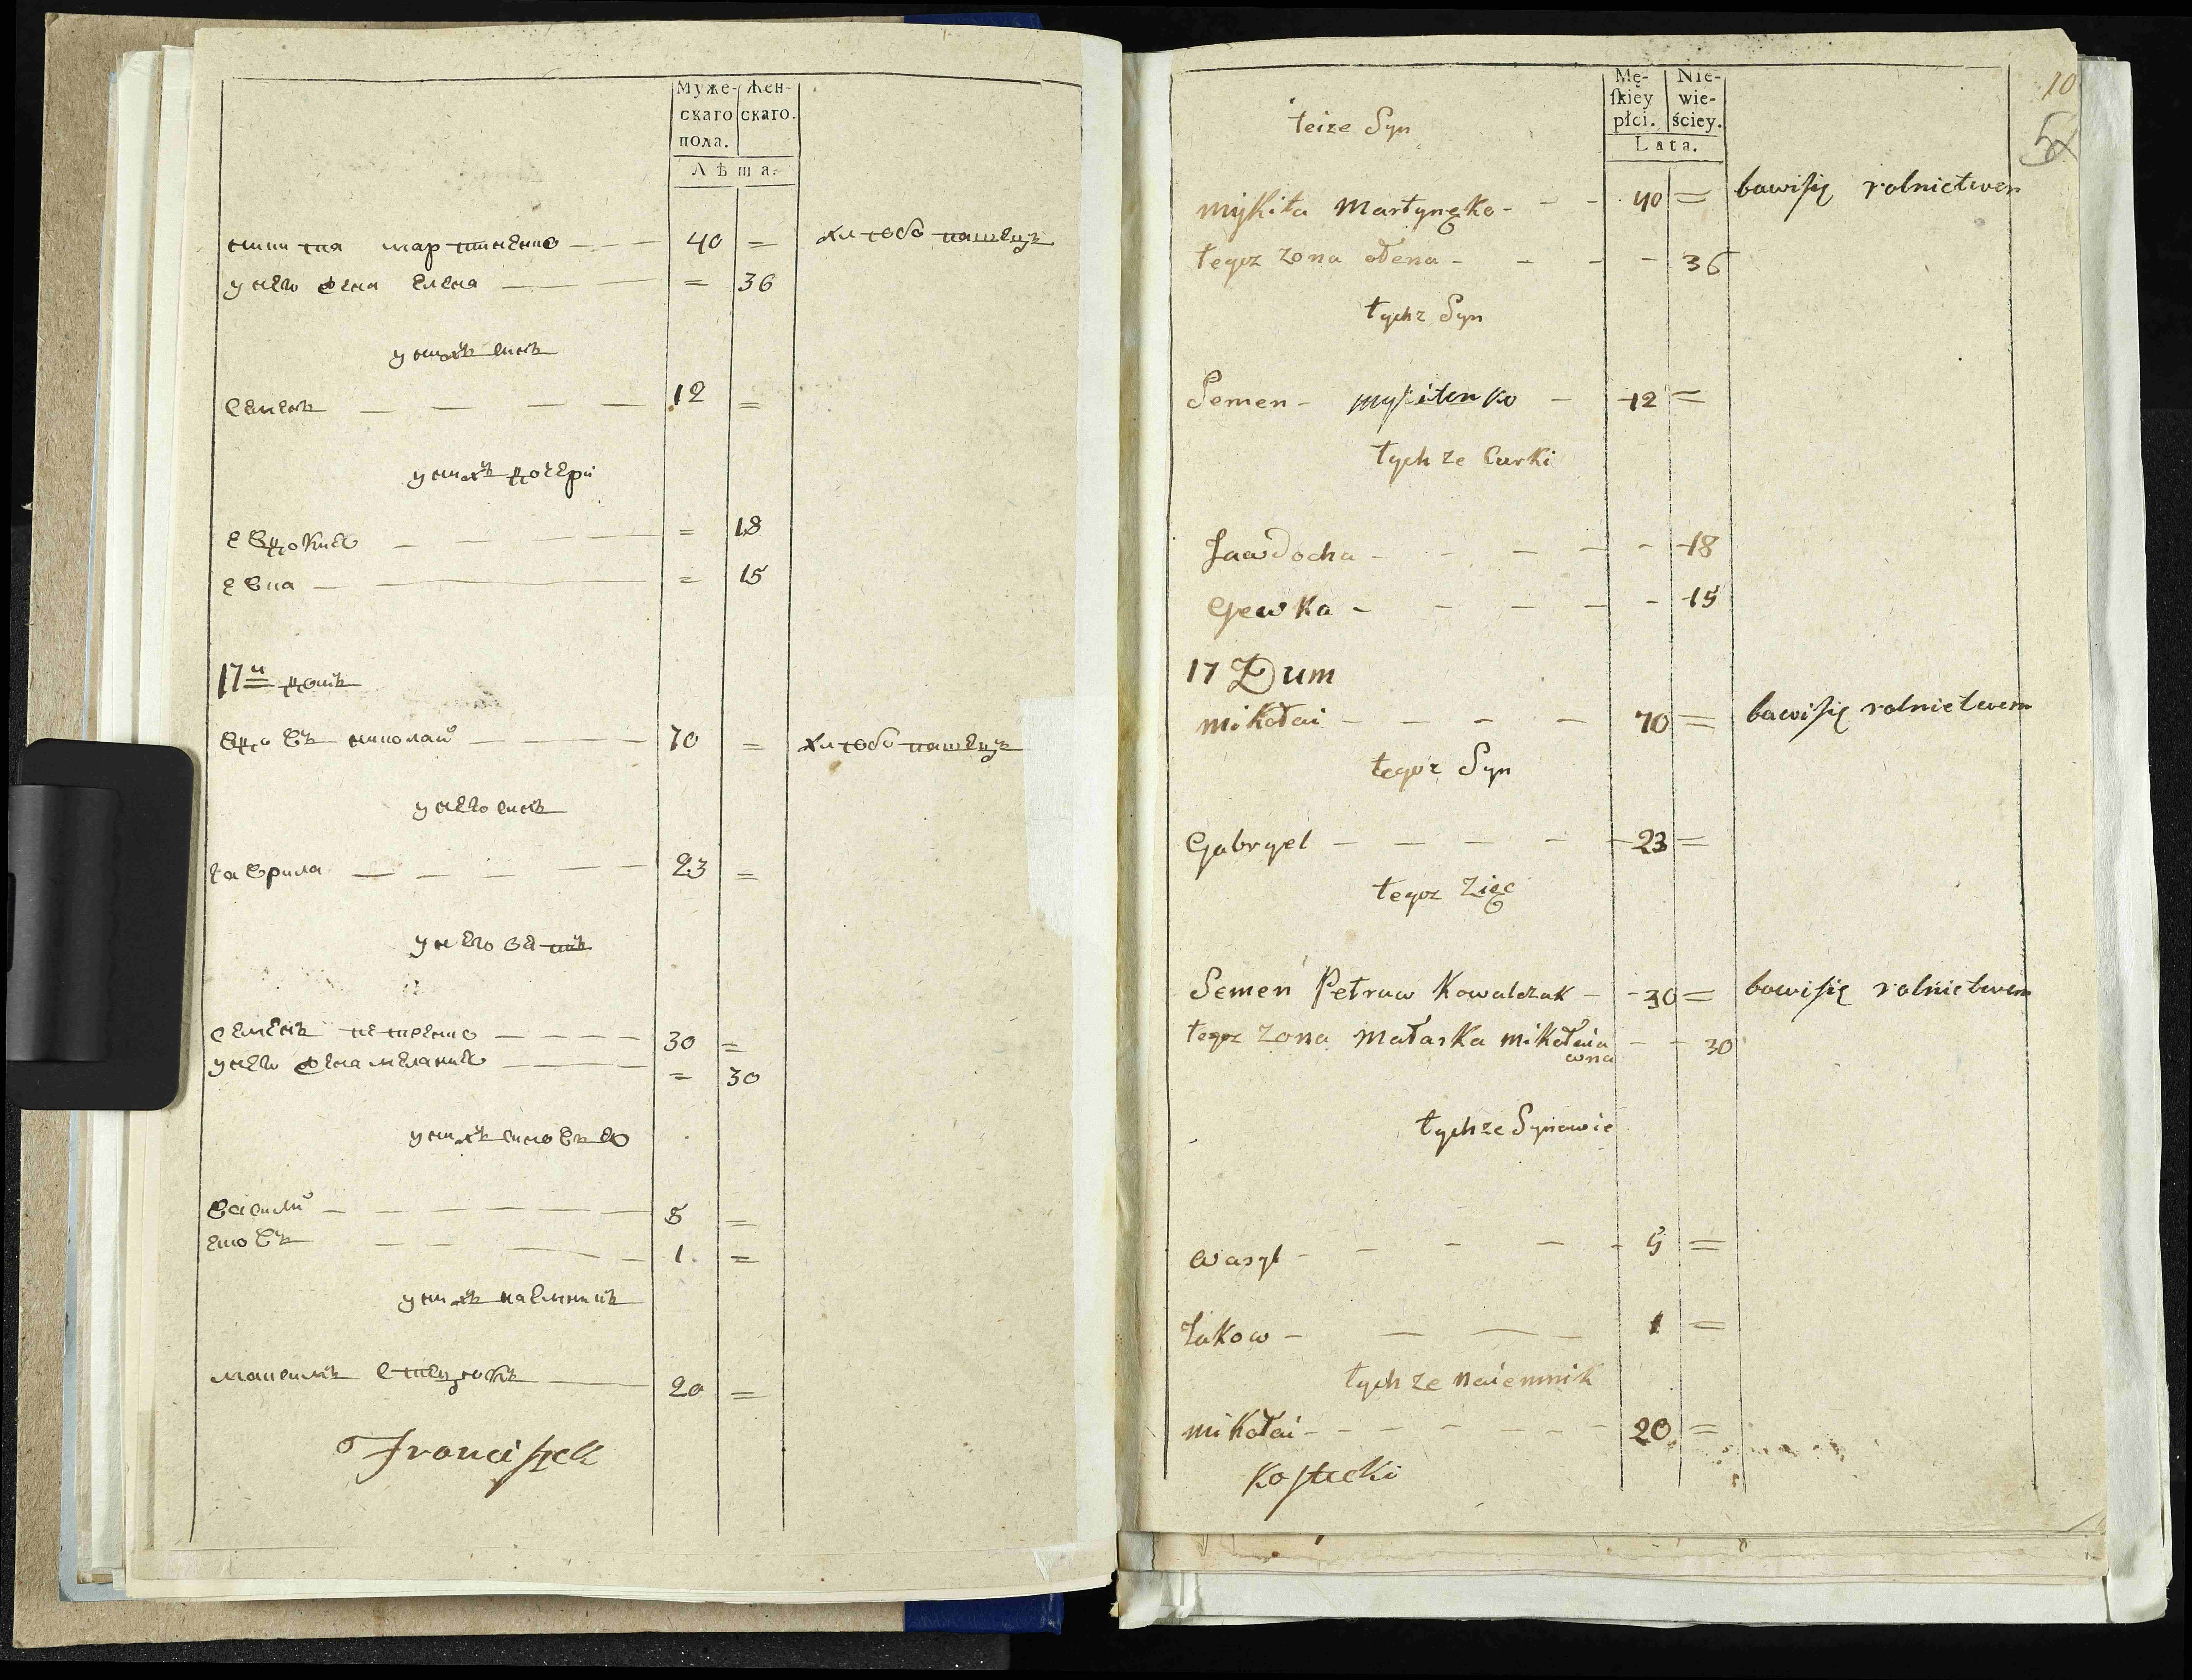 Муже- Жен-
скаго скаго.
пола.
Лѣта.
никита мартиненко 40 = хлебопашецъ
у него жена елена = 36
у нихъ синъ
семенъ 12 =
у нихъ дочери
евдокия = 18
евка = 15
17й домъ
вдовъ николай 70 = хлебопашецъ
у него синъ
гаврила 23 =
у него зять
семенъ петренко 30 =
у него жена мелания = 30
у нихъ синовья
василий 5 =
яковъ 1 =
у нихъ наемникъ
20 =
Franciszek
10
Mę- Nie-
skiey wie-
płci. ściey.
Lata.
teize Syn
mykita Martynęko 40 = bawi się rolnictwem
tegoz zona ołena 36
tychz Syn
Semen mykitenko 12 =
tych ze Curki
Jawdocha 18
Gewka 15
17 Dum
mikołai 70 = bawi się rolnictwem
tegoz Syn
Gabryel 23 =
tegoz Zięc
Semen Petruw Kowalczuk 30 = bawi się rolnictwem
tegoz zona Małaska mikołaiowna 30
tychze Synowie
wasyl 5 =
Jakow 1 =
tych ze naiemnik
mikołai 20 =
Kostecki